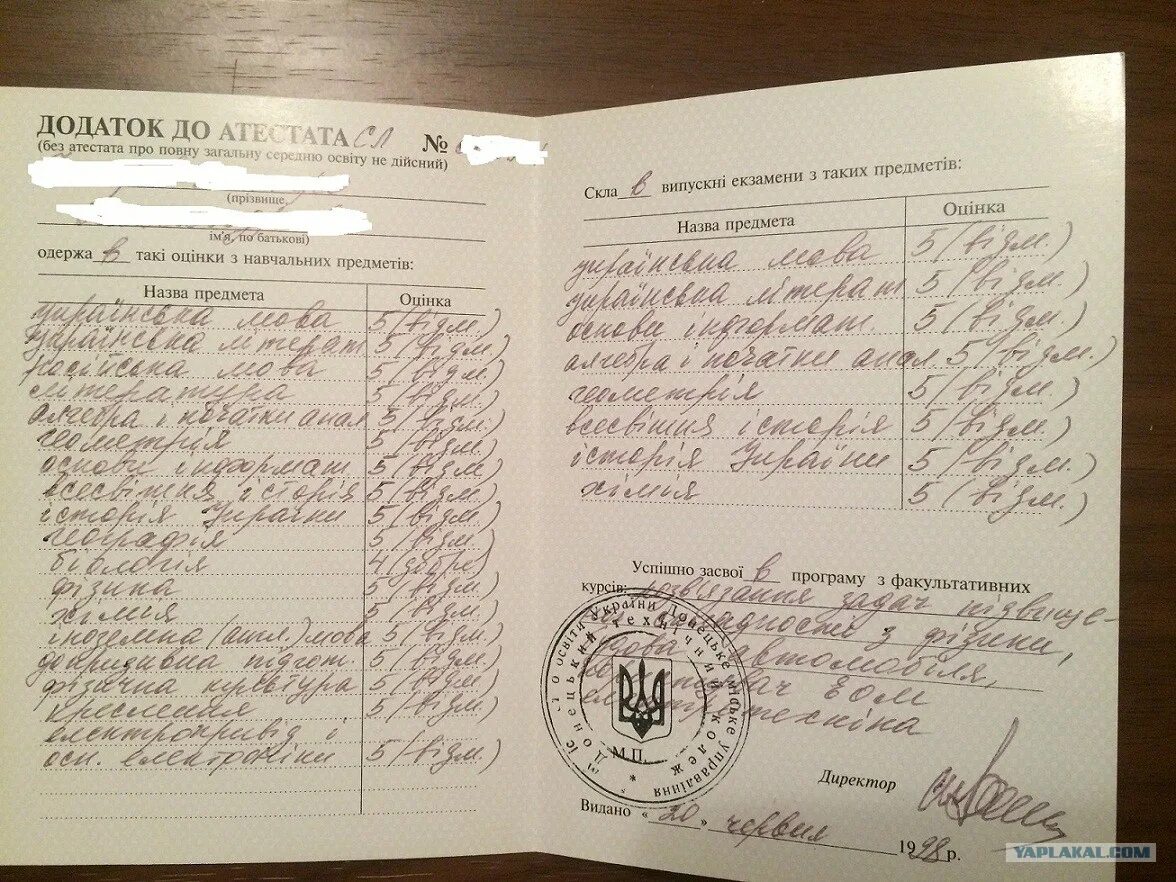 ДОДАТОК ДО АТЕСТАТА СЛ №
(без атестата про повну загальну середню освіту не дійсний)
(прізвище,
ім'я, по батькові)
одержа в такі оцінки з навчальних предметів:
Назва предмета Оцінка
українська мова 5 (відм.)
українська літерат 5 (відм.)
російська мова 5 (відм.)
література 5 (відм.)
алгебра і початки анал 5 (відм.)
геометрія 5 (відм.)
основи інформат 5 (відм.)
всесвітня історія 5 (відм.)
історія України 5 (відм.)
географія 5 (відм.)
біологія 4 (добре)
фізика 5 (відм.)
хімія 5 (відм.)
іноземна (англ.) мова 5 (відм.)
допризивна підгот. 5 (відм.)
фізична культура 5 (відм.)
креслення 5 (відм.)
електропривід і
осн. електроніки 5 (відм.)
Скла в випускні екзамени з таких предметів:
Назва предмета Оцінка
українська мова 5 (відм.)
українська літерат 5 (відм.)
основи інформат. 5 (відм.)
алгебра і початки анал. 5 (відм.)
геометрія 5 (відм.)
всесвітня історія 5 (відм.)
історія України 5 (відм.)
хімія 5 (відм.)
Успішно засвої в програму з факультативних
курсів: розв'язання задач підвище-
з фізики,
автомобіля,
ЕОМ
Донецький технічний коледж
М.П.
Директор
Видано « 20 » червня 1998 р.
YAPLAKAL.COM